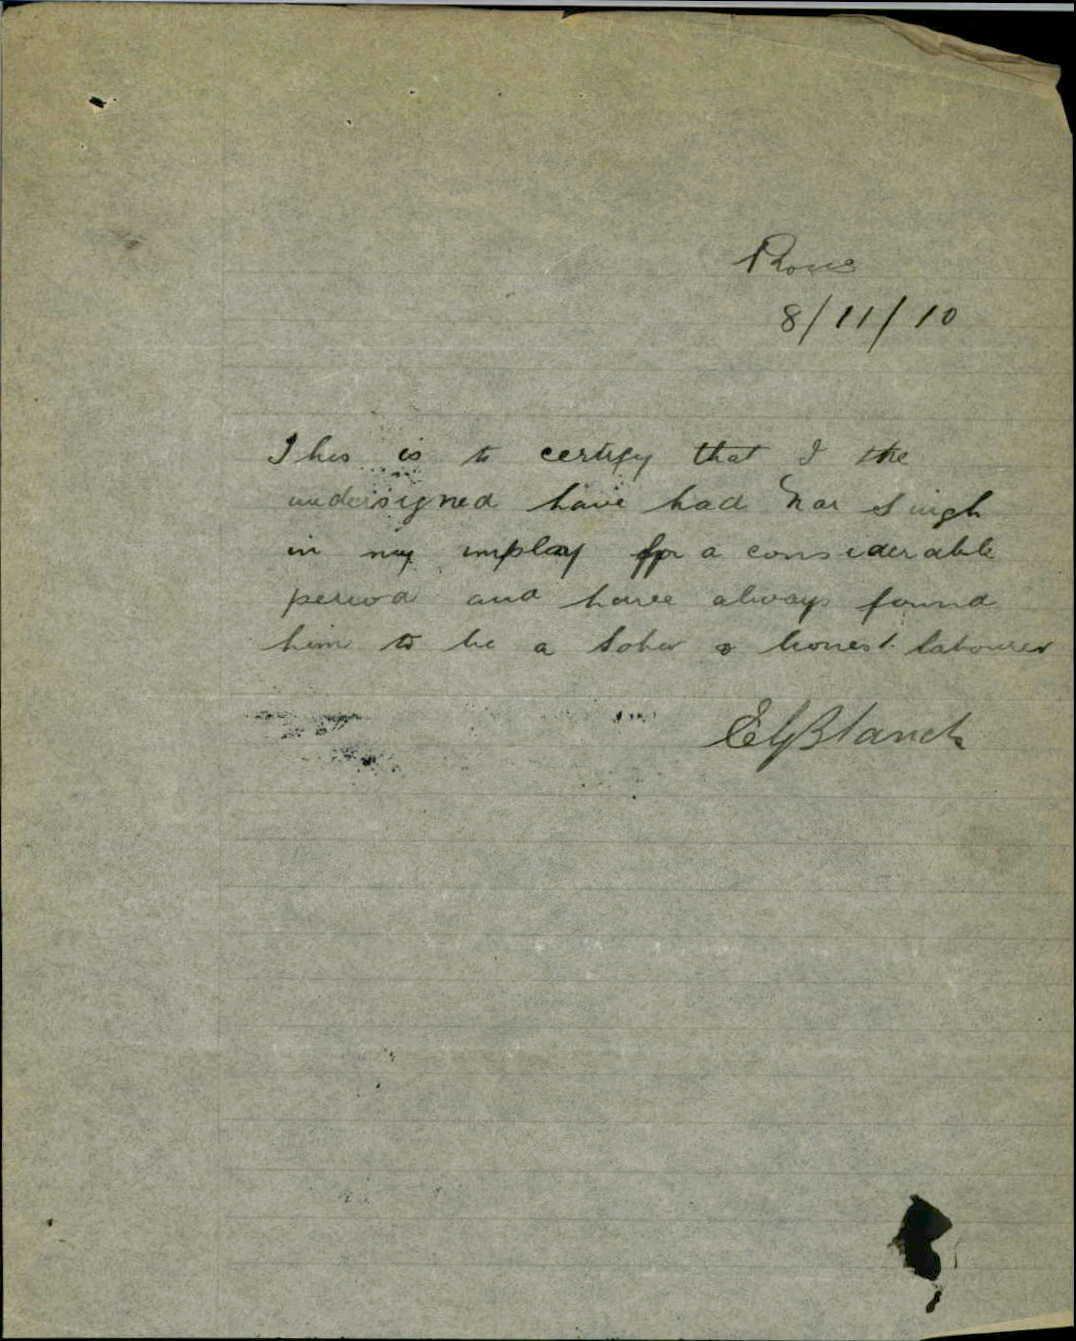 Rous
8/11/10
This is to certify that I the
undersigned have had Nar Singh
in my imploy for a considerable
period and have always found
him to be a sober & honest labourer
EGBlanch